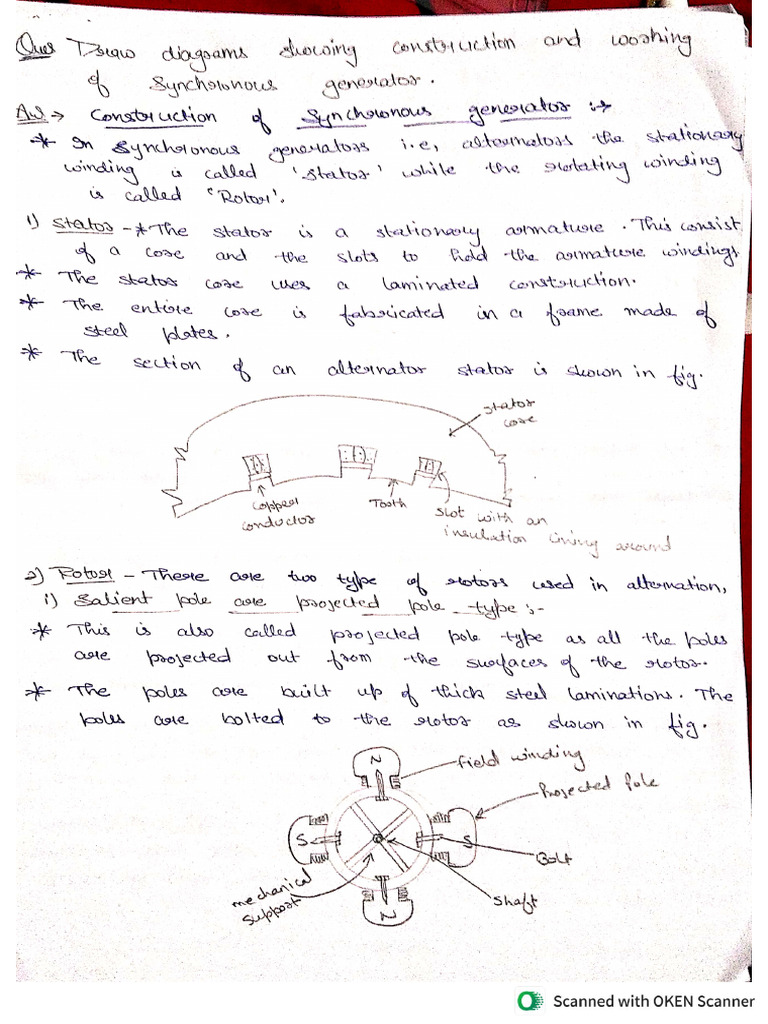 Ques Draw diagrams showing construction and working
of Synchronous generator.
Ans → Construction of Synchronous generator :→
* In Synchronous generators i.e, alternators the stationary
winding is called 'Stator' while the rotating winding
is called 'Rotor'.
1) Stator - * The stator is a stationary armature. This consist
of a core and the slots to hold the armature windings
* The stator core uses a laminated construction.
* The entire core is fabricated in a frame made of
steel plates.
* The section of an alternator stator is shown in fig.
stator
core
Copper
conductor
Tooth
Slot with an
insulation lining around
2) Rotor - There are two type of rotors used in alternation,
i) Salient pole are projected pole type :-
* This is also called projected pole type as all the poles
are projected out from the surfaces of the rotor.
* The poles are built up of thick steel laminations. The
poles are bolted to the rotor as shown in fig.
N
field winding
Projected Pole
S
S
Bolt
mechanical
support
N
Shaft
Scanned with OKEN Scanner